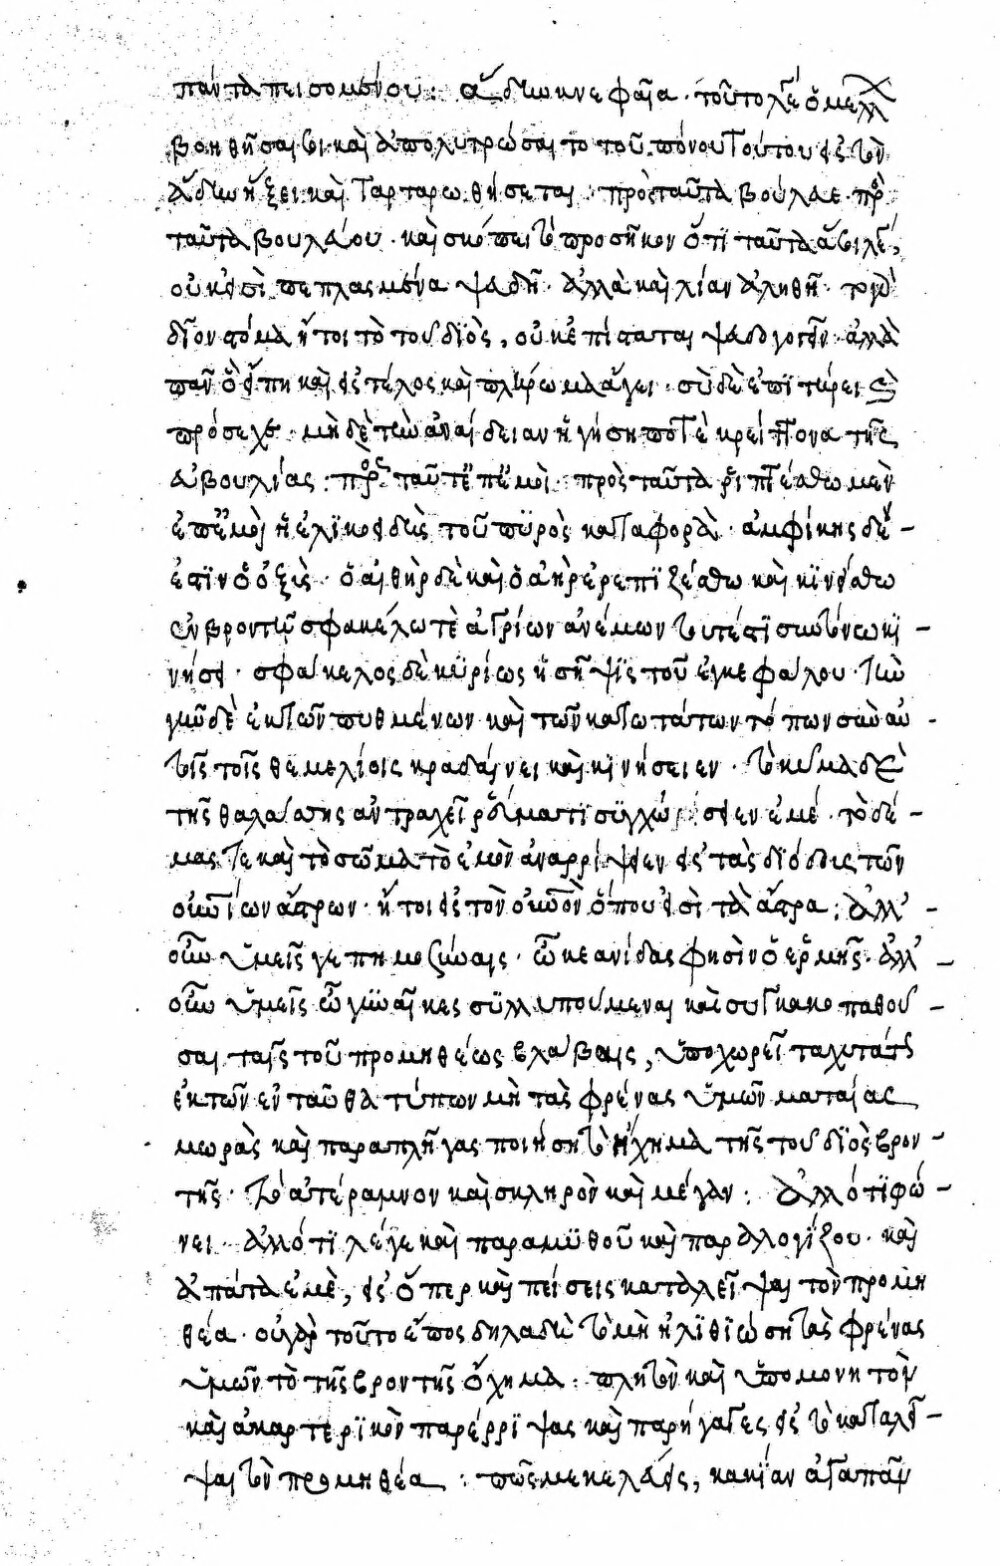 πάντα πεισομένου: ἄδην κνεφαῖα. τοῦτο λέγει ὁ μέλλων
βοηθῆσαί σοι καὶ ἀπολυτρῶσαι το τοῦ πόνου τούτου εἰς τὸν
ἄδην ἥξει καὶ ταρταρωθήσεται. πρὸς ταῦτα βούλευε. πρὸς
ταῦτα βουλεύου. καὶ σκόπει τὸ προσῆκον ὅτι ταῦτα
οὐκ εἰσὶ πεπλασμένα ψευδῆ. ἀλλὰ καὶ λίαν ἀληθῆ. τὸ γὰρ
δῖον στόμα ἤτοι τὸ τοῦ διὸς, οὐκ ἐπίσταται ψευδηγορεῖν. ἀλλὰ
πᾶν ὃ εἴπῃ καὶ εἰς τέλος καὶ πλήρωμα ἄγει. σὺ δὲ ἐπιτήρει καὶ
πρόσεχε. μὴ δὲ τὴν ἀναίδειαν ἡγήσῃ ποτὲ κρείττονα τῆς
ἀβουλίας: πρὸς ταῦτ' ἐπ' ἐμοί. πρὸς ταῦτα ῥιπτέσθω μὲν
ἐπ' ἐμοὶ ἡ ἑλικοειδὴς τοῦ πυρὸς καταφορὰ. ἀμφίκης δέ
ἐστιν ὁ ὀξὺς. ὁ αἰθὴρ δὲ καὶ ὁ ἀὴρ ἐρεθιζέσθω καὶ κινείσθω
ἐν βροντῇ σφακέλω τὲ ἀγρίων ἀνέμων τουτέστι συντόνω κι
νήσει. σφάκελος δὲ κυρίως ἡ σῆψις τοῦ ἐγκεφάλου. τὴν
γῆν δὲ ἐκ τῶν πυθμένων καὶ τῶν κατωτάτων τόπων σὺν αὐ
τοῖς τοῖς θεμελίοις κραδαίνει καὶ κινήσειεν. τὸ κῦμα δὲ
τῆς θαλάσσης ἂν τραχεῖ ῥεύματι συγχώσειεν ἐμέ. τὸ δέ
μας τε καὶ τὸ σῶμα τὸ ἐμὸν ἀναρρίψειεν εἰς τὰς διόδους τῶν
οὐρανίων ἄστρων. ἤτοι εἰς τὸν οὐρανὸν ὅπου εἰσὶ τὰ ἄστρα: ἀλλ'
οὖν ὑμεῖς γε πημοσύναις. ὠκεανίδας φησὶν ὁ ἑρμῆς. ἀλλ'
οὖν ὑμεῖς ὦ γυναῖκες συλλυπούμεναι καὶ συγκακοπαθοῦ
σαι ταῖς τοῦ προμηθέως βλάβαις, ὑποχωρεῖτε ταχυτάτως
ἐκ τῶν ἐνταῦθα τόπων μὴ τὰς φρένας ὑμῶν ματαίας
μωρὰς καὶ παραπλῆγας ποιήσῃ τὸ ἤχημα τῆς τοῦ διὸς βρον
τῆς. τὸ ἀτέραμνον καὶ σκληρὸν καὶ μέγαν: ἀλλό τι φώ
νει. ἀλλό τι λέγε καὶ παραμυθοῦ καὶ παραλογίζου. καὶ
ἀπάτα ἐμὲ, εἰς ὅπερ καὶ πείσεις καταλεῖψαι τὸν προμη
θέα. οὐ γὰρ τοῦτο ἔπος δηλαδὴ τὸ μὴ ἠλιθιώσῃ τὰς φρένας
ὑμῶν τὸ τῆς βροντῆς ὄχημα. τλητὸν καὶ ὑπομονητὸν
καὶ ἀκαρτερικὸν παρέρριψας καὶ παρήγαγες εἰς τὸ καταλεῖ
ψαι τὸν προμηθέα: πῶς με κελεύεις, κακίαν ἀγαπᾶν